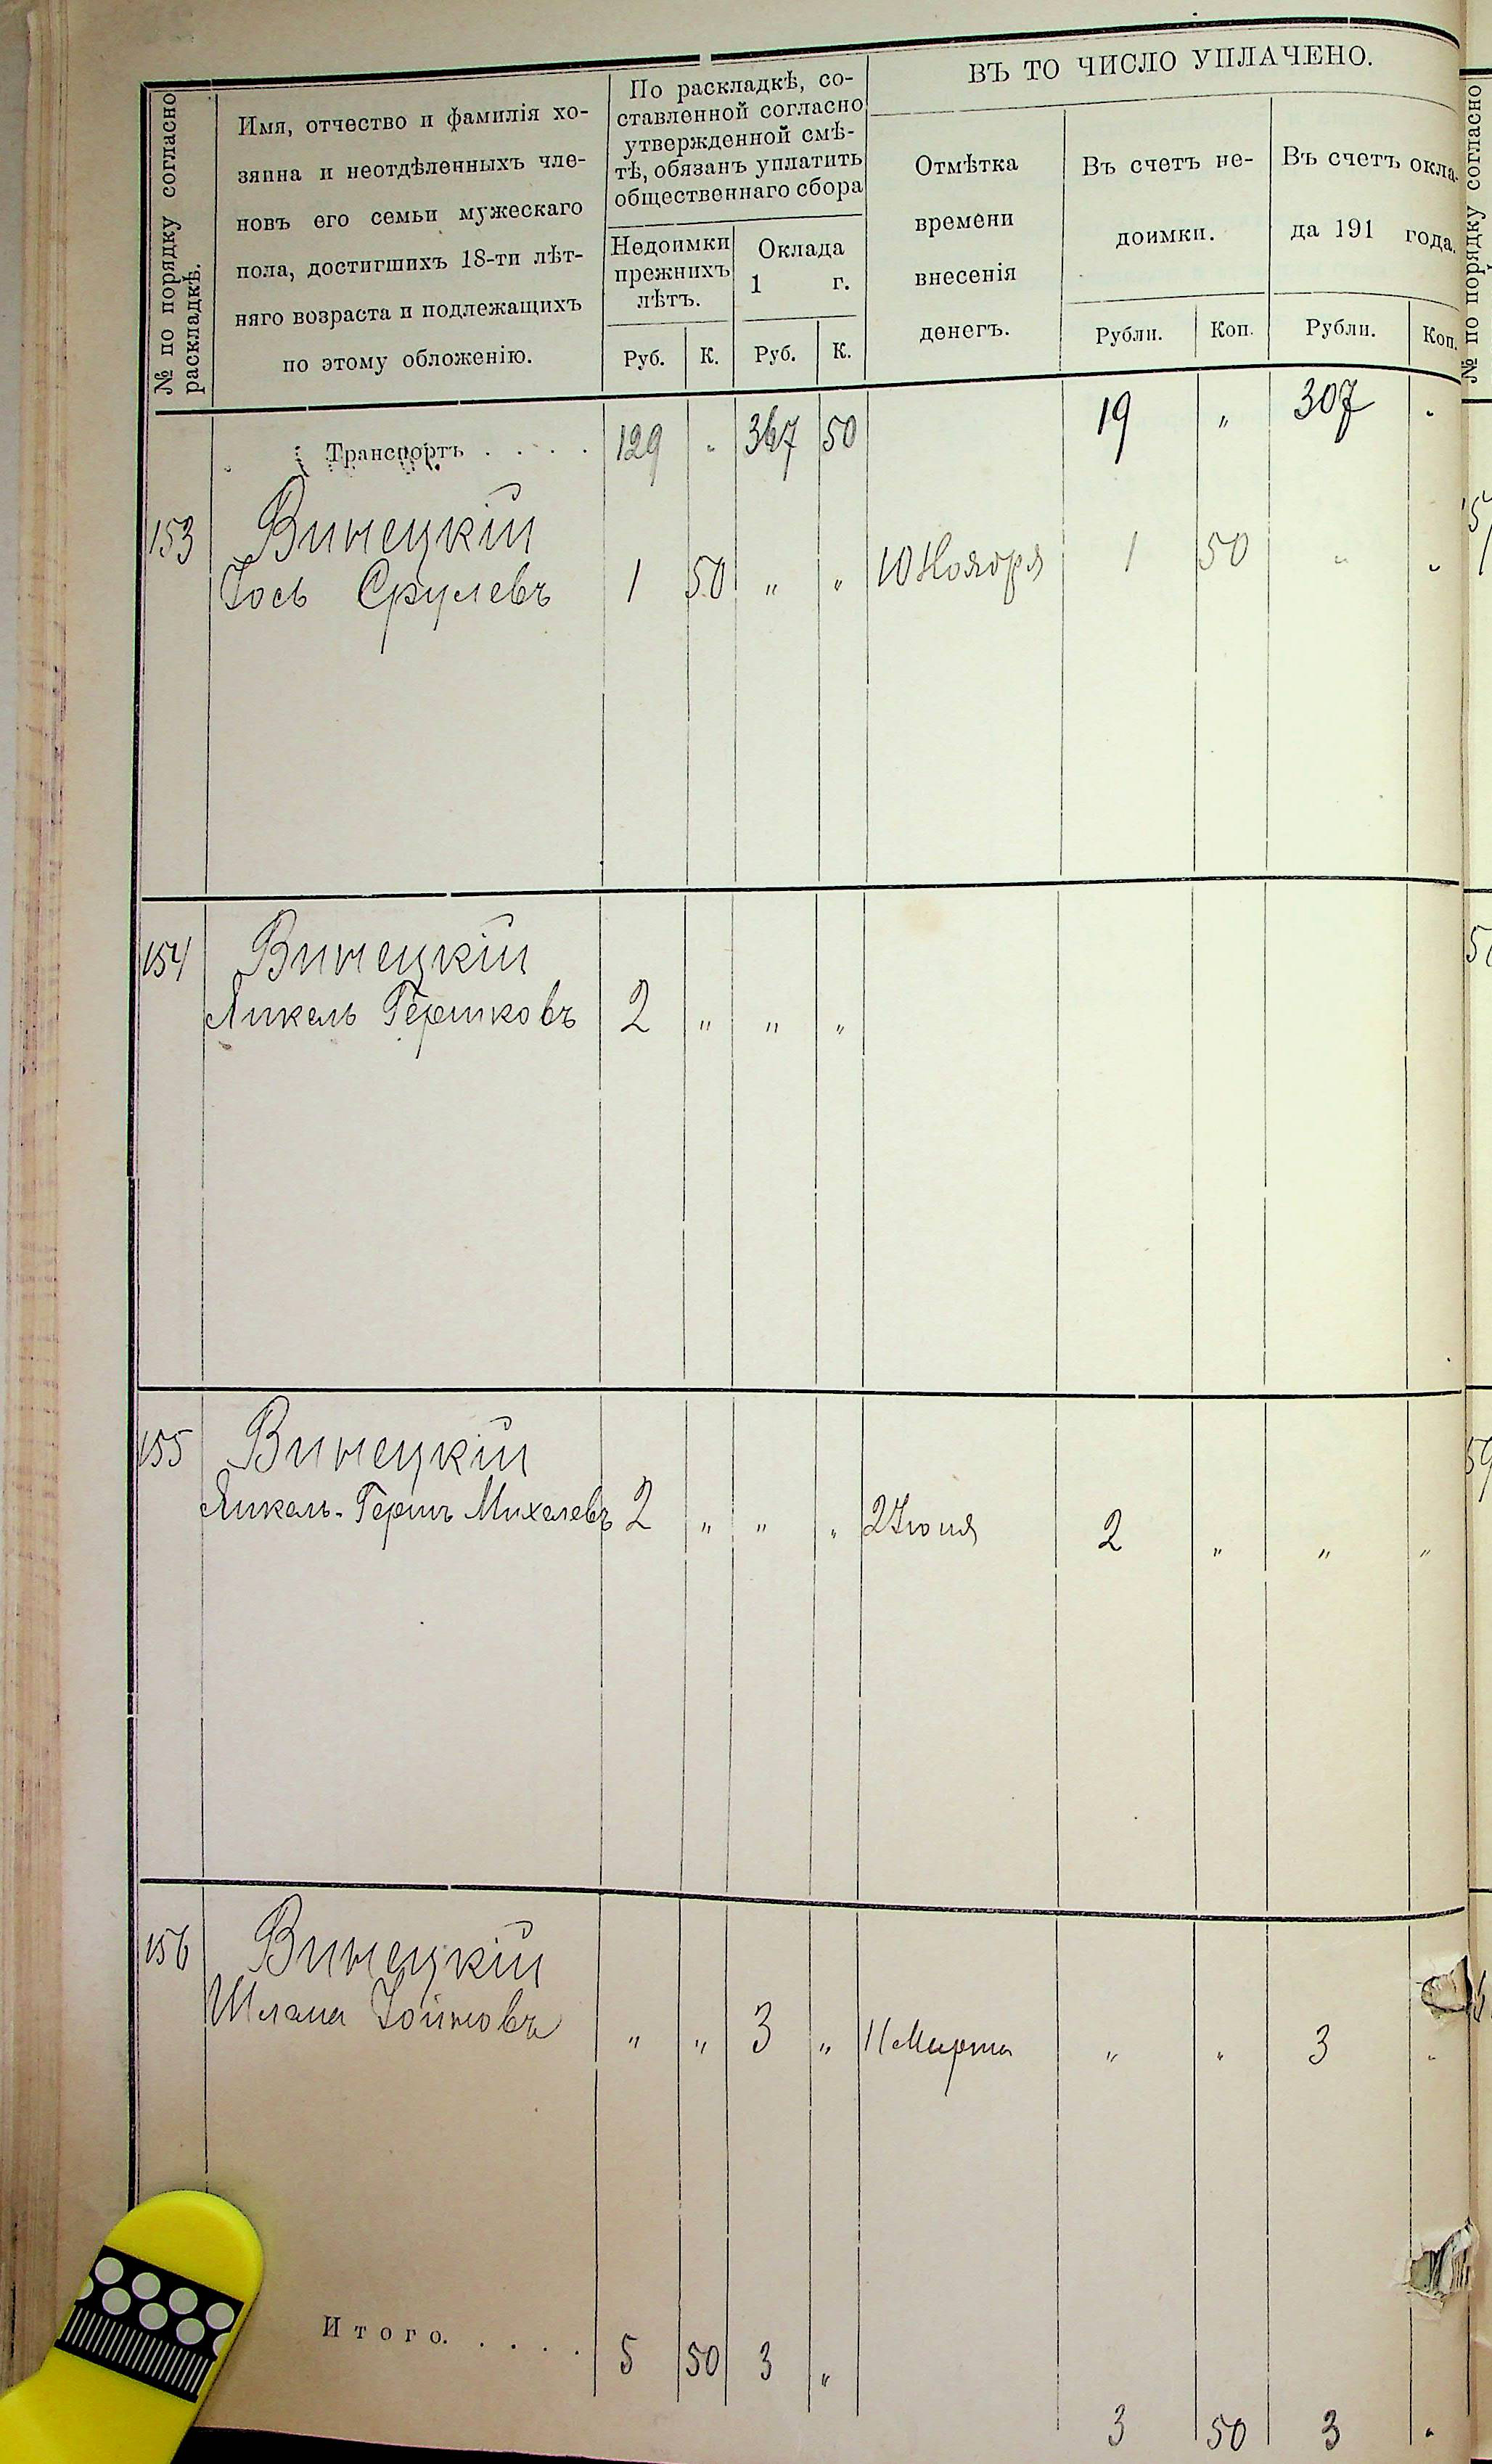 № по порядку согласно
раскладкѣ.
Имя, отчество и фамилія хо-
зяина и неотдѣленныхъ чле-
новъ его семьи мужескаго
пола, достигшихъ 18-ти лѣт-
няго возраста и подлежащихъ
по этому обложенію.
По раскладкѣ, со-
ставленной согласно
утвержденной смѣ-
тѣ, обязанъ уплатить
общественнаго сбора
Недоимки
прежнихъ
лѣтъ.
Оклада
1 г.
Руб. К. Руб. К.
ВЪ ТО ЧИСЛО УПЛАЧЕНО.
Отмѣтка
времени
внесенія
денегъ.
Въ счетъ не-
доимки.
Рубли. Коп.
Въ счетъ окла-
да 191 года.
Рубли. Коп.
№ по порядку согласно
Транспортъ . . . . 129 „ 367 50 19 „ 307 „
153 Винецкій
Іось Срулевъ 1 50 „ „ 10 Ноября 1 50 „ „
154 Винецкій
Янкель Гершковъ 2 „ „ „
155 Винецкій
Янкель-Гершъ Михелевъ 2 „ „ „ 2 Іюня 2 „ „ „
156 Винецкій
Шлама Хоймовъ „ „ 3 „ 11 Марта „ „ 3 „
Итого. . . . . 5 50 3 „ 3 50 3 „